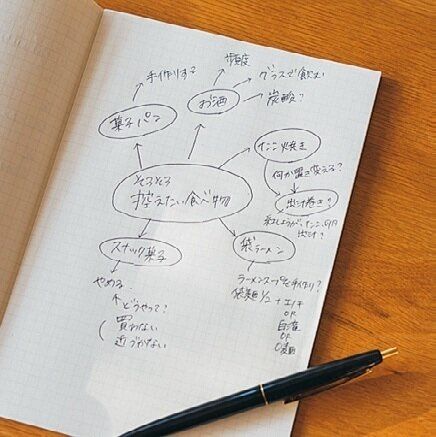 頻度
手作りする
グラスで飲む
お酒
炭酸?
菓子パン
たこ焼き
何か置き変える?
そろそろ
控えたい食べ物
出汁巻き?
紅しょうが、たこ、
出汁?
スナック菓子
袋ラーメン
やめる
どうやって?
買わない
近づかない
ラーメンスープを手作り?
袋麺1/2 + エノキ
or
白滝
or